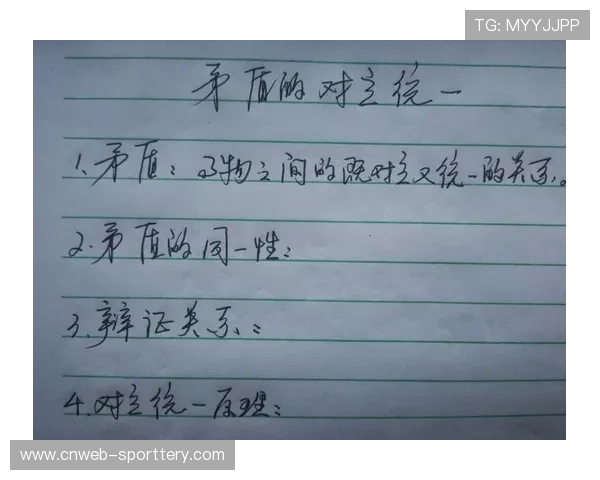 TG: MYYJJPP
矛盾的对立统一
1.矛盾：事物之间的既对立又统一的关系。
2.矛盾的同一性：
3.辩证关系：
4.对立统一原理：
www.cnweb-sporttery.com